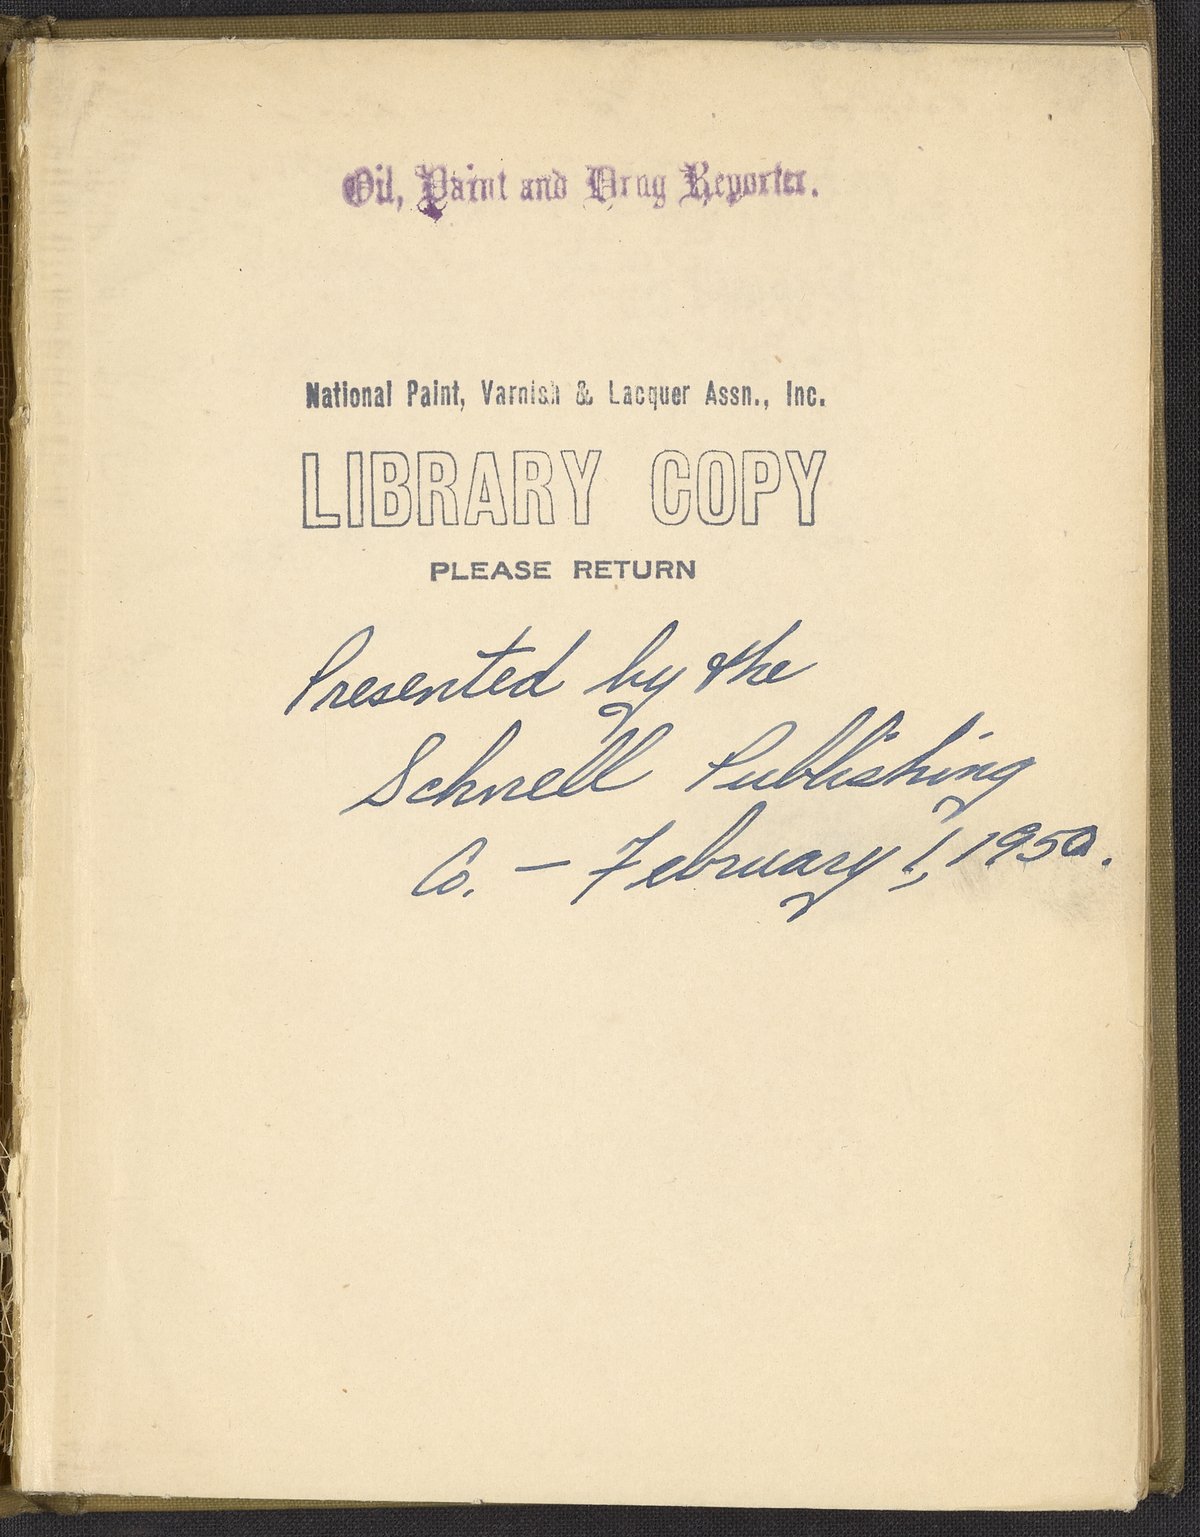 Oil, Paint and Drug Reporter.
National Paint, Varnish & Lacquer Assn., Inc.
LIBRARY COPY
PLEASE RETURN
Presented by the
Schnell Publishing
Co. - February 1, 1950.